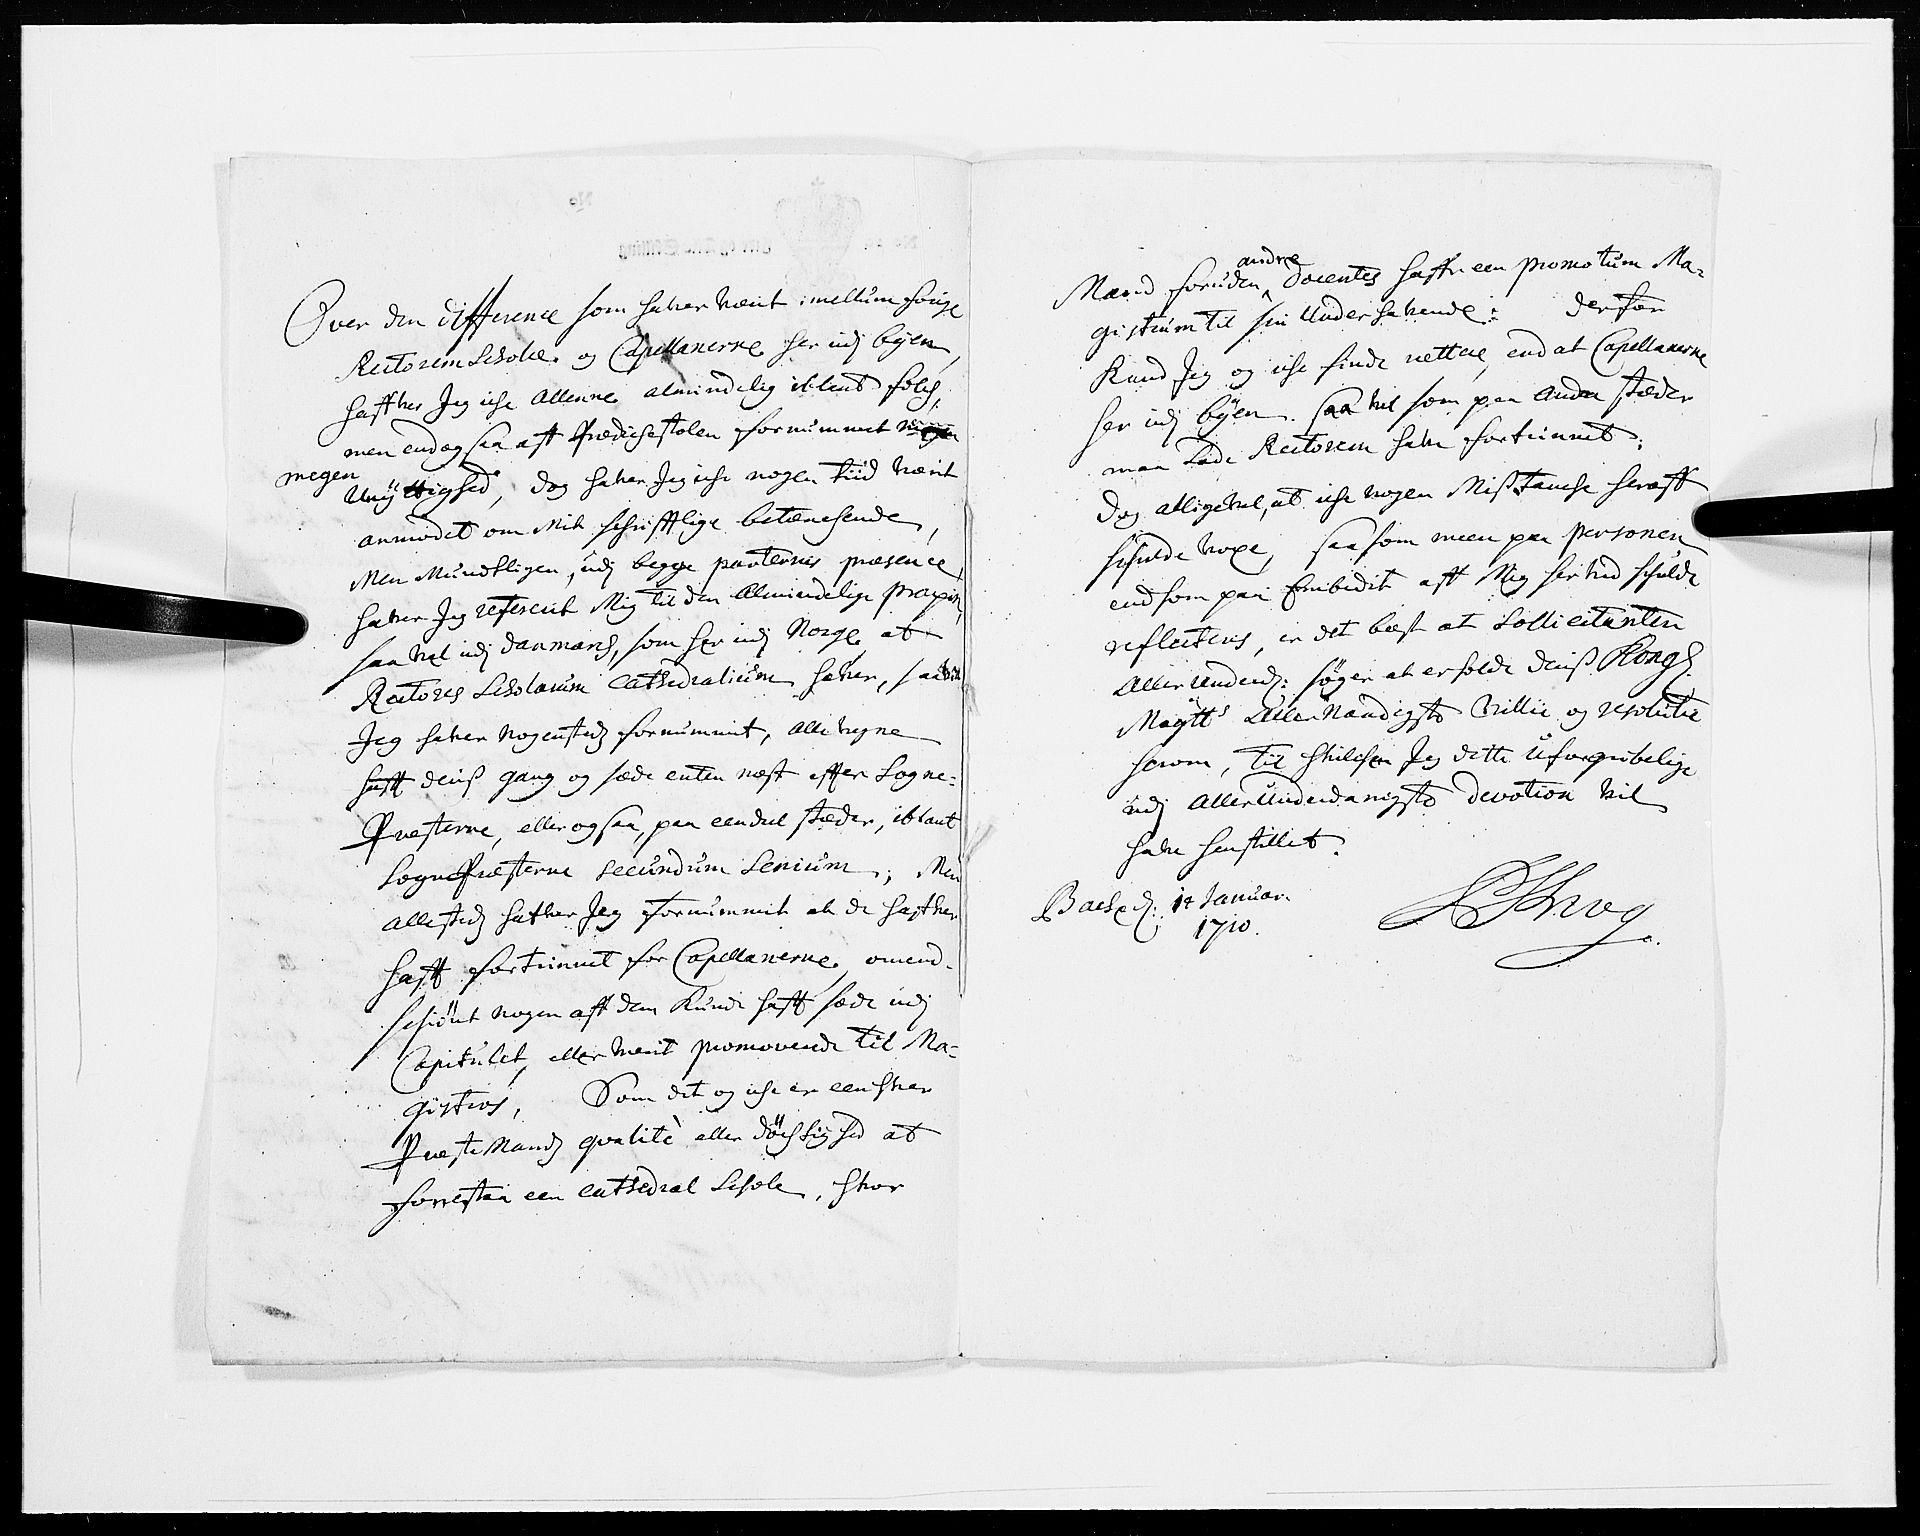 Over den difference som haver værit imellum forige
Rectorem Scholæ og Capellanerne her udj byen,
haffver Jeg iche allenne almindelig iblant folch,
men endog saa aff Prædichestolen fornummet
megen
Unyttighed, dog haver Jeg iche nogen tiid værit
anmodet om Mit schrifftlige betænchende,
Men Mundtligen, udj begge parternis præsence,
haver Jeg refererit Mig til den Almindelige praxin,
saa vel udj Danmarch, som her udj Norge, at
Rectores Scholarum Cathedralium haver, saa vit
Jeg haver nogenstedz fornummit, alle vegne
hafft deris gang og sæde enten næst effter Sogne-
Præsterne, eller og saa, paa een deel stæder, iblant
SognePræsterne secundum Senium; Men
allestedz haffver Jeg fornummit at de haffver
hafft fortrinnet for Capellanerne, omend-
schiönt nogen aff dem Kunde hafft sæde udj
Capitulet, eller verit promoverede til Ma-
gistros, Som det og iche er een hver
PræsteMandz qvalité eller döchtighed at
forrestaa een Cathedral Schole, hvor
Mand foruden andre Docentes haffver een promotum Ma-
gistrum til sin Underhavende: derfor
Kand Jeg og iche finde rettere, end at Capellanerne
her udj byen saa vel som paa andre stæder
maa lade Rectorem have fortrinnet.
Dog alligevel, at iche nogen Mistanche heraff
schulde voxe, saa som meer paa personen
end som paa Embedit aff Mig herved schulde
reflecteris, er det best at Sollicitanten
Allerunderd: söger at erholde deris Kongl.
Maÿtts AllerNaadigste Villie og resolution
herom, til hvilchen Jeg dette uforgribelige
udj AllerUnderdanigste devotion vil
have henstillet.
d. 14 Januar.
1710.
Krog